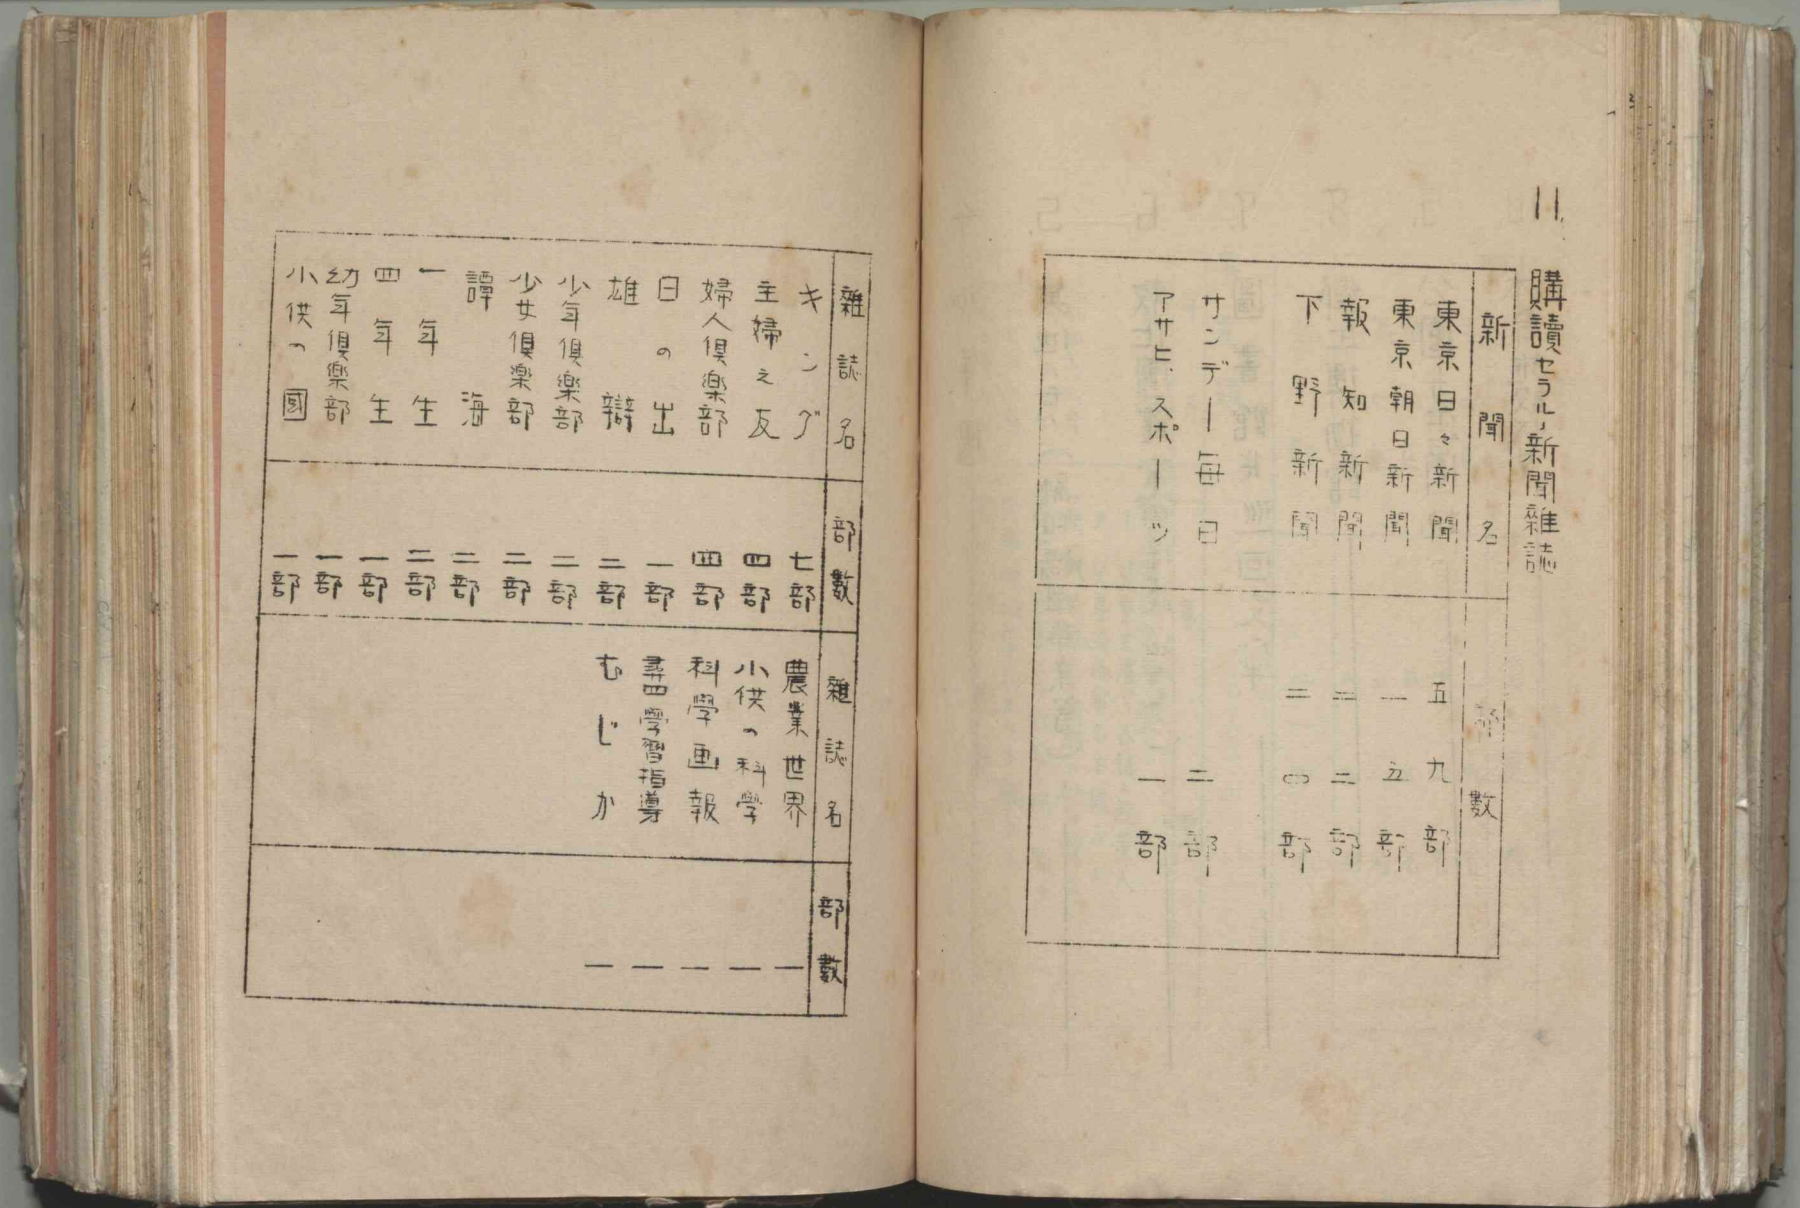 11. 購讀セラル丶新聞雜誌
新聞名
部數
東京日々新聞
五九部
東京朝日新聞
一五部
報知新聞
二二部
下野新聞
二〇部
サンデー毎日
二部
アサヒ、スポーツ
一部
雜誌名
部數
雜誌名
部數
キング
七部
農業世界
一
主婦之友
四部
小供の科學
一
婦人倶楽部
四部
科學画報
一
日の出
一部
尋四學習指導
一
雄辯
二部
むじか
一
少年倶楽部
二部
少女倶楽部
二部
譚海
二部
一年生
二部
四年生
一部
幼年倶楽部
一部
小供の國
一部